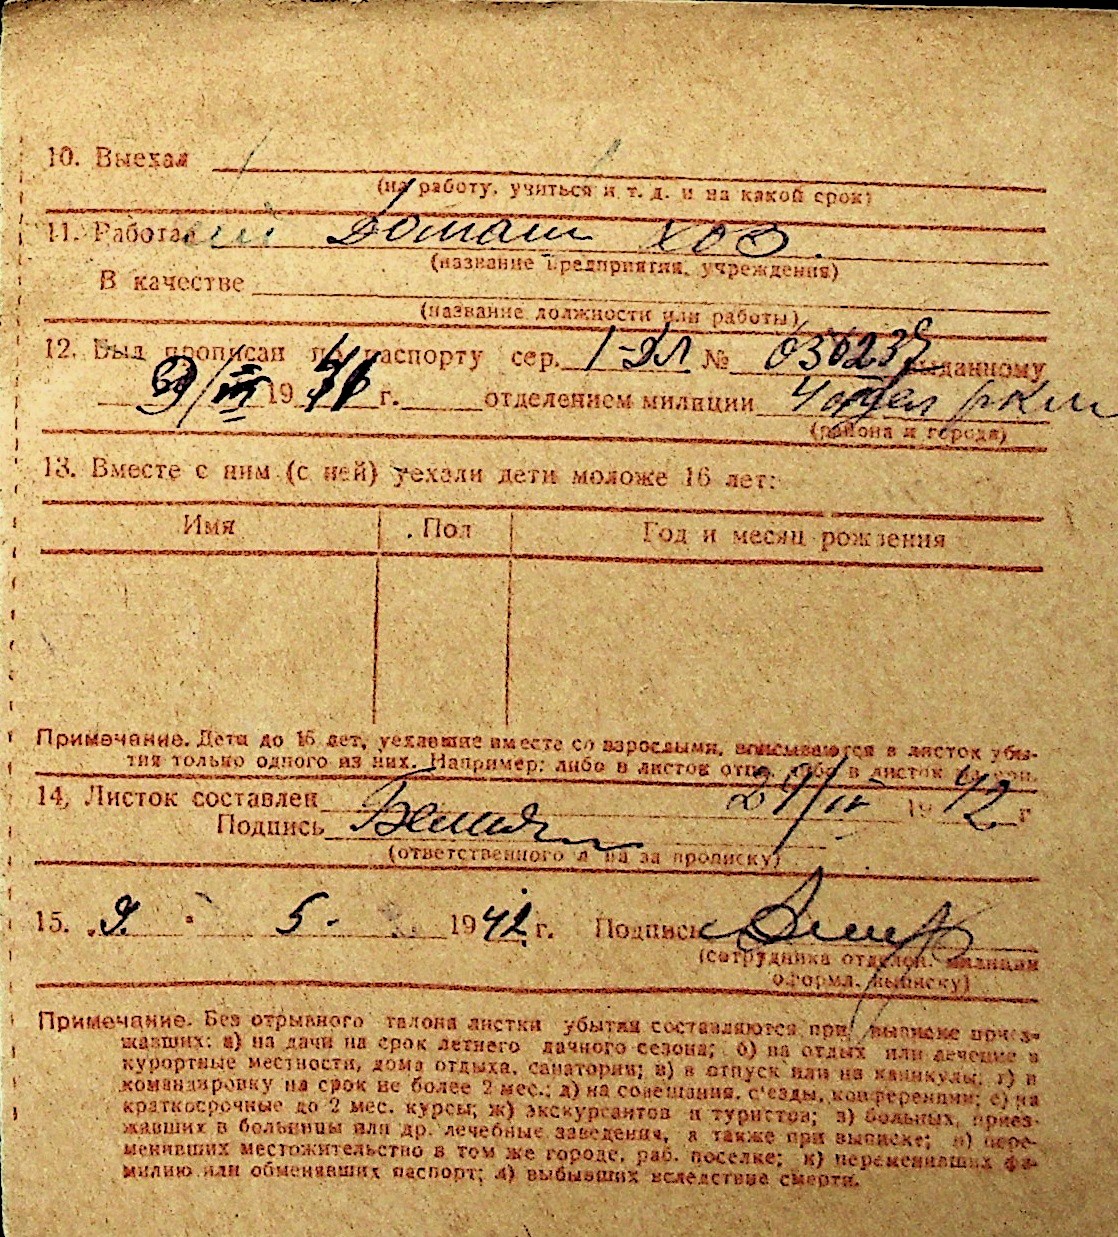 10. Выехал
(на работу, учиться и т. д. и на какой срок)
11. Работал
(название предприятия, учреждения)
В качестве
(название должности или работы)
12. Был прописан по паспорту сер. 1-ЭЛ № выданному
19 г. отделением милиции
(района и города)
13. Вместе с ним (с ней) уехали дети моложе 16 лет:
Имя Пол Год и месяц рождения
Примечание. Дети до 16 лет, уехавшие вместе со взрослыми, вписываются в листок убы-
тия только одного из них. Например: либо в листок отца, либо в листок матери.
14. Листок составлен 1942 г
Подпись
(ответственного л на за прописку)
15. 9. 5. 1942 г. Подпись
(сотрудника отделен. милиции
оформл. выписку)
Примечание. Без отрывного талона листки убытия составляются при выписке приез-
жавших: а) на дачи на срок летнего дачного сезона; б) на отдых или лечение в
курортные местности, дома отдыха, санатории; в) в отпуск или на каникулы; г) в
командировку на срок не более 2 мес.; д) на совещания, с'езды, конференции; е) на
краткосрочные до 2 мес. курсы; ж) экскурсантов и туристов; з) больных, приез-
жавших в больницы или др. лечебные заведения, а также при выписке; и) пере-
менивших местожительство в том же городе, раб. поселке; к) переменивших фа-
милию или обменявших паспорт; л) выбывших вследствие смерти.